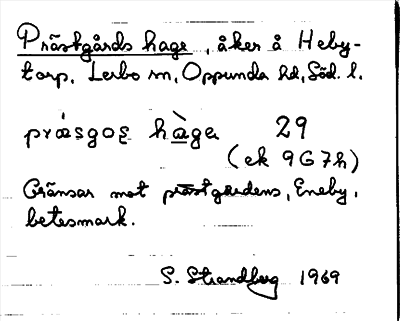 Prästgårds hage, åker å Heby-
torp, Lerbo sn, Oppunda hd, Söd. l.
präsgoʂ hàga 29
(ek 9G7h)
Gränsar mot prästgårdens, Eneby,
betesmark.
S. Strandberg 1969